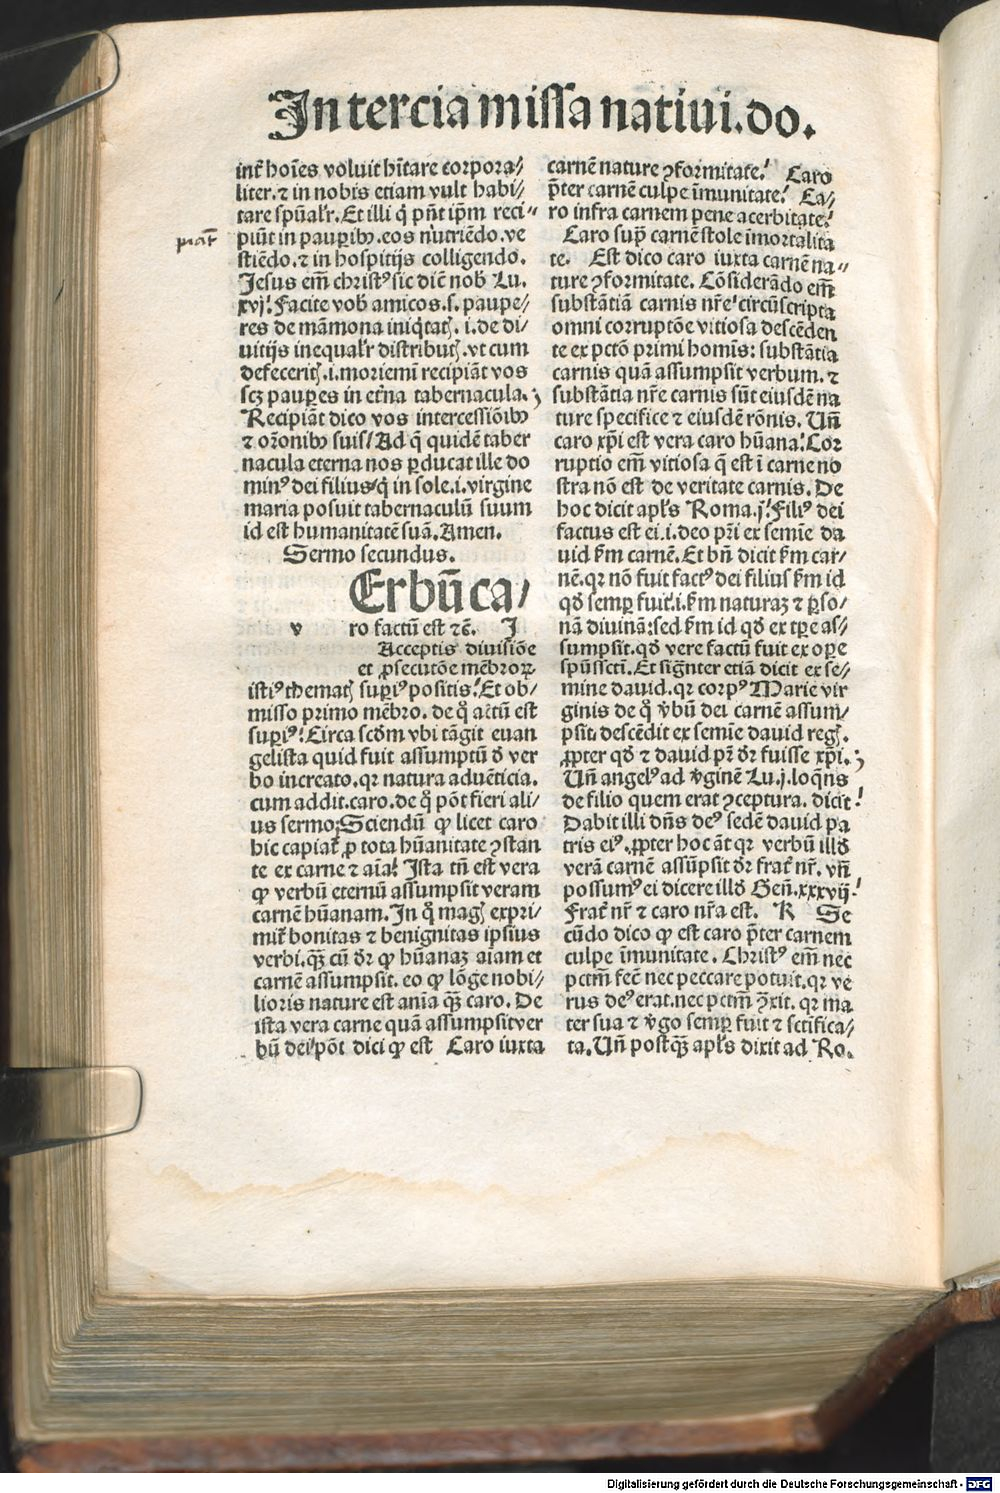 In tercia missa nativi.do.
int̃ hoiẽs voluit hĩtare corpora⸗
liter.⁊ in nobis etiam vult habi⸗
tare spũal'r. Et illi q̇ pñt ip̃m reci⸗
piũt in pauꝑibꝰ.eos nutriẽdo.ve
stiẽdo.⁊ in hospitijs colligendo.
Jesus em̃ christꝰ sic diẽ nob̃ Lu.
xvj! Facite vob̃ amicos.s.paupe⸗
res de mãmona iniq̇tatꝭ.i.de di⸗
uitijs inequal'r distributꝭ.vt cum
defeceritꝭ.i.moriemĩ recipiãt vos
scꝫ pauꝑes in et̃na tabernacula.
Recipiãt dico vos intercessiõibꝰ
⁊ oz̃onibꝰ suis/ Ad q̃ quidẽ taber
nacula eterna nos ꝑducat ille do
minꝰ dei filius/q̇ in sole.i.virgine
maria posuit tabernaculũ suum
id est humanitatẽ suã.Amen.
Sermo secundus.
Erbũ ca/
v ro factũ est ⁊c̃. J
Acceptis divisiõe
et ꝓsecutõe mẽbroꝝ
istiꝰ thematꝭ suꝑiꝰ positis! Et ob⸗
misso primo mẽbro. de q̊ actũ est
suꝑiꝰ! Circa scd̃m vbi tãgit euan
gelista quid fuit assumptũ d̃ ver
bo increato.qꝛ natura aduẽticia.
cum addit.caro.de q̊ põt fieri ali⸗
us sermo;Sciendũ ꝙ licet caro
hic capiat̃ ꝓ tota hũanitate ꝯstan
te ex carne ⁊ aĩa! Ista tñ est vera
ꝙ verbũ eternũ assumpsit veram
carnẽ hũanam.In q̊ magꝭ expri⸗
mit̃ bonitas ⁊ benignitas ipsius
verbi.qꝫ cũ dr̃ ꝙ hũanaꝫ aĩam et
carnẽ assumpsit. eo ꝙ lõge nobi⸗
lioris nature est anĩa qꝫ caro. De
ista vera carne quã assumpsit ver
bũ dei/ põt dici ꝙ est Caro iuxta
carnẽ nature ꝯformitate! Caro
p̃ter carnẽ culpe ĩmunitate! Ca⸗
ro infra carnem pene acerbitate!
Caro sup̃ carnẽ stole ĩmortalita
te. Est dico caro iuxta carnẽ na⸗
ture ꝯformitate. Cõsiderãdo em̃
substãtiã carnis nr̃e/ circũscripta
omni corruptõe vitiosa descẽden
te ex pctõ primi homĩs: substãtia
carnis quã assumpsit verbum.⁊
substãtia nr̃e carnis sũt eiusdẽ na
ture specifice ⁊ eiusdẽ rõnis. Uñ
caro xp̃i est vera caro hũana! Cor
ruptio em̃ vitiosa q̃ est ĩ carne no
stra nõ est de veritate carnis. De
hoc dicit apl̃s Roma.j! Filiꝰ dei
factus est ei.i.deo pr̃i ex semĩe da
uid k̃m carnẽ.Et bñ dicit k̃m car⸗
nẽ.qꝛ nõ fuit factꝰ dei filius k̃m id
qd̃ semꝑ fuit.i.k̃m naturaꝫ ⁊ ꝑso⸗
nã diuinã:sed k̃m id qd̃ ex tꝑe as⸗
sumpsit.qd̃ vere factũ fuit ex oꝑe
spũssctĩ. Et sigñter etiã dicit ex se⸗
mine dauid.qꝛ corpꝰ Marie vir
ginis de q̊ v̓bũ dei carnẽ assum⸗
psit. descẽdit ex semĩe dauid regꝭ.
ꝓpter qd̃ ⁊ dauid pr̃ dr̃ fuisse xp̃i.
Uñ angelꝰ ad v̓ginẽ Lu.j.loq̃ns
de filio quem erat ꝯceptura. dicit!
Dabit illi dñs deꝰ sedẽ dauid pa
tris eiꝰ. ꝓpter hoc ãt qꝛ verbũ illd̃
verã carnẽ assũpsit dr̃ frat̃ nr̃. vñ
possumꝰ ei dicere illd̃ Geñ.xxxvij!
Frat̃ nr̃ ⁊ caro nr̃a est. K Se
cũdo dico ꝙ est caro p̃ter carnem
culpe ĩmunitate. Christꝰ em̃ nec
pctm̃ fec̃ nec peccare potuit.qꝛ ve
rus deꝰ erat.nec pctm̃ ꝯ̃xit. qꝛ ma
ter sua ⁊ v̓go semꝑ fuit ⁊ sctĩfica⸗
ta. Uñ postqꝫ apl̃s dixit ad Ro.
Digitalisierung gefördert durch die Deutsche Forschungsgemeinschaft - DFG